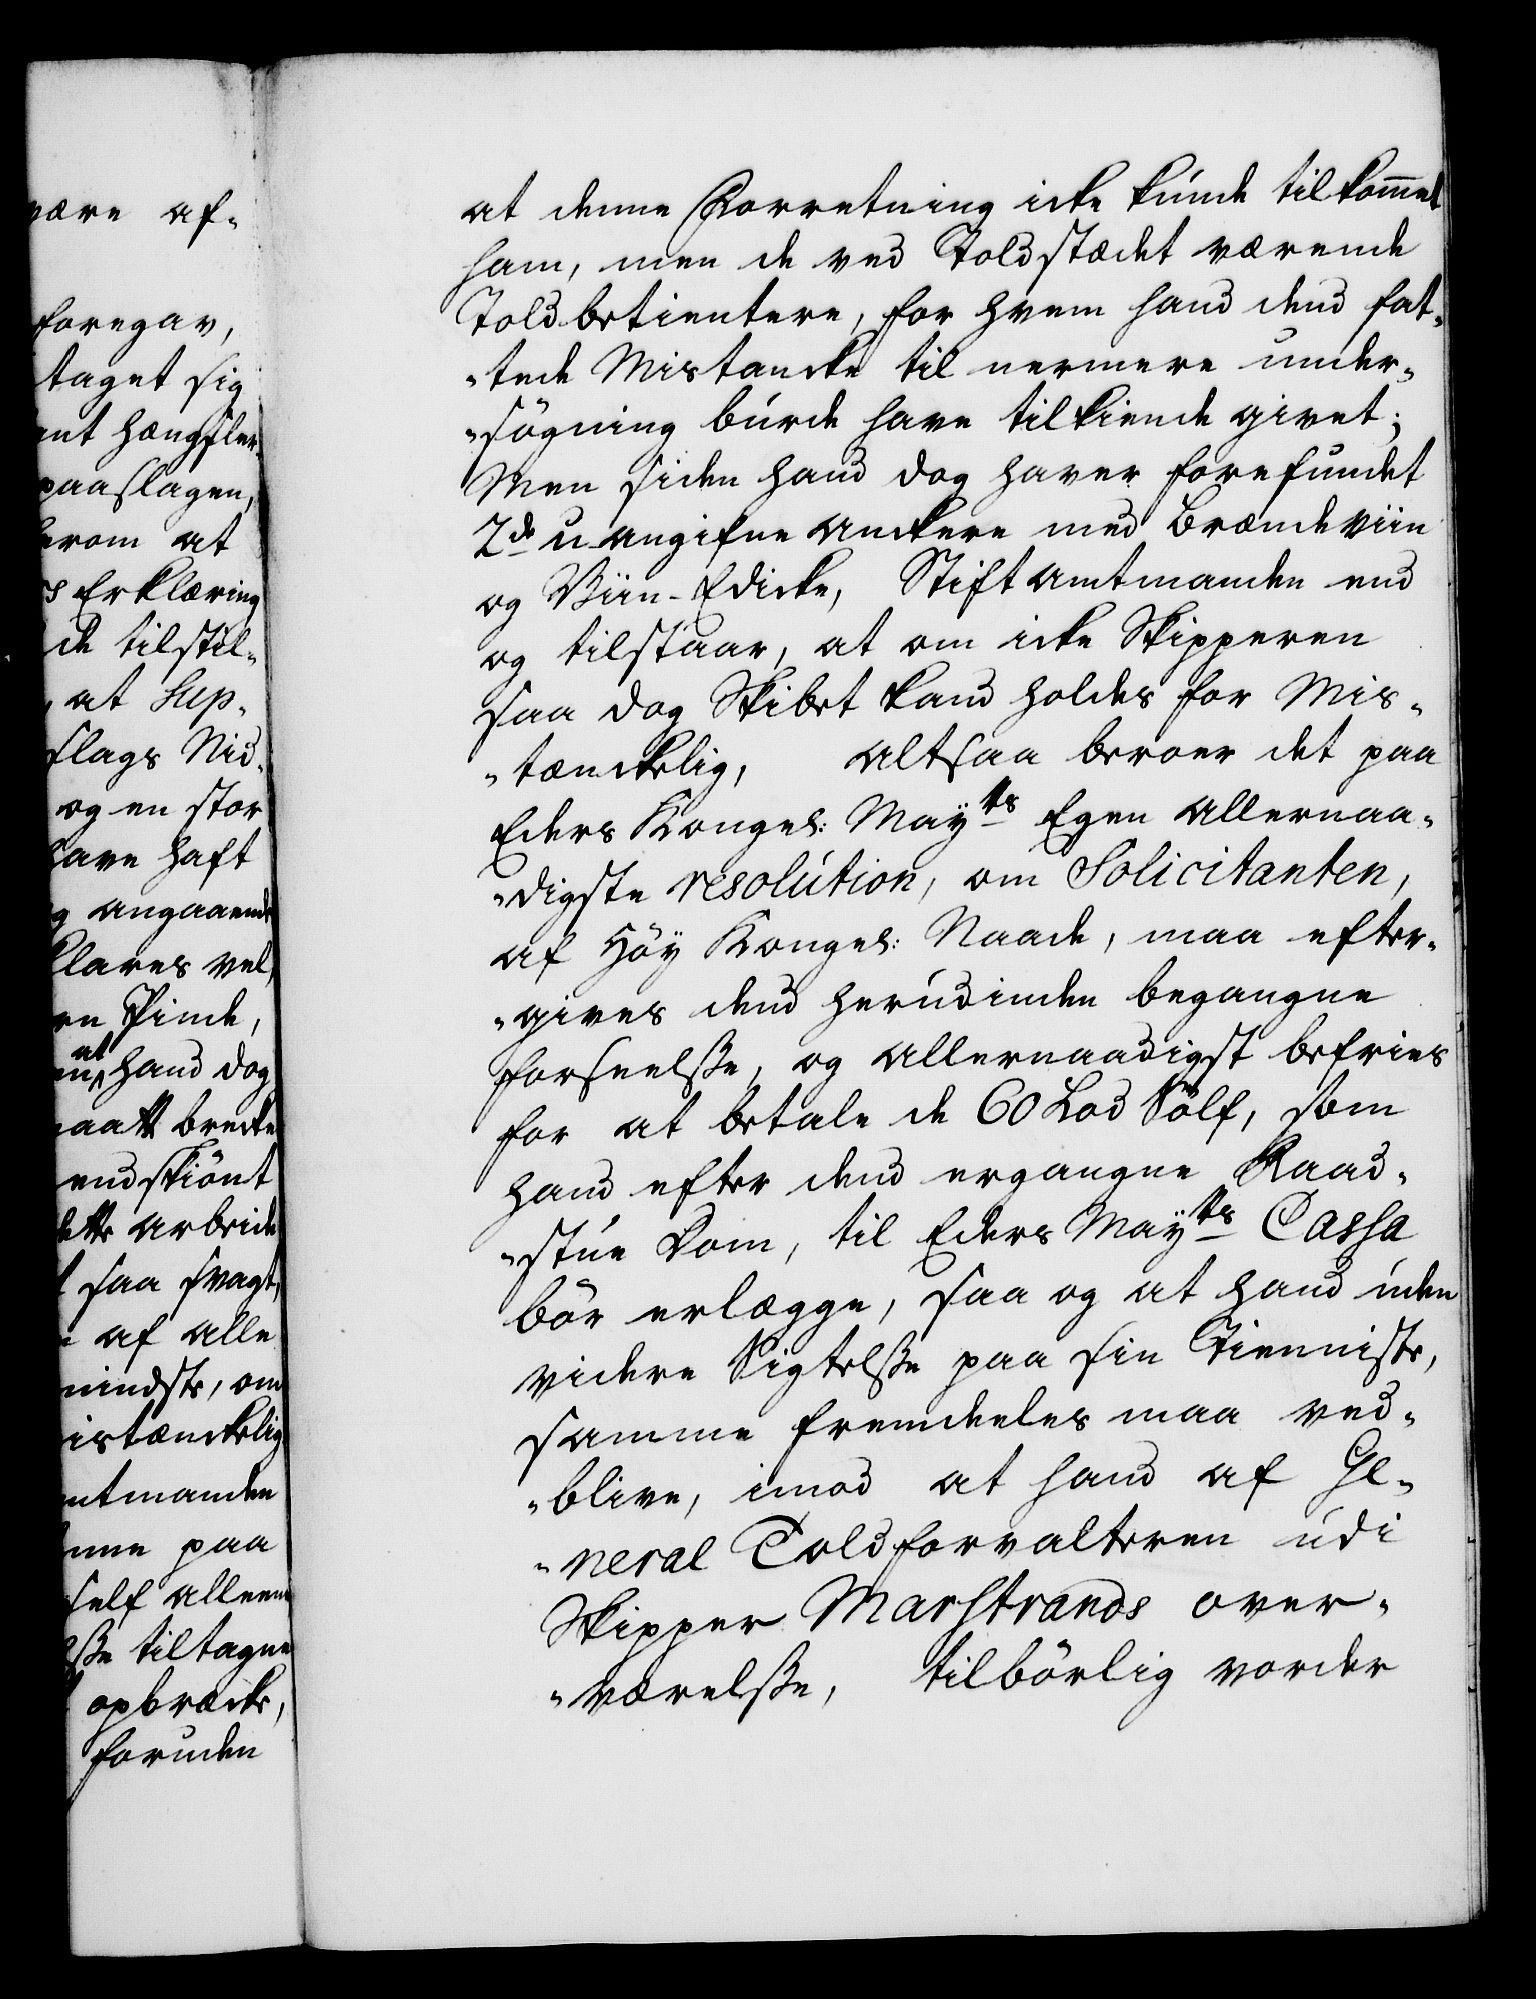 være af-
foregav,
taget sig
nt hængsler
paaslagen,
erom at
s Erklæring
de tilstil-
, at Sup-
slags Nid-
og en stor
have haft
g angaaende
klares vel,
en Pinde,
at
hand dog
maatt brecke
endskiönt
dette arbeide
saa svagt,
af alle
mindste, om
istænckelig
ntmanden
nne paa
self alleene
sse tiltagne
opbræcke,
foruden
at denne Forretning icke kunde tilkommet
ham, men de ved Toldstædet værende
Toldbetientere, for hvem hand dend fat-
-tede Mistancke til nermere under-
-søgning burde have tilkiende givet;
Men siden hand dog haver forefundet
2de u-angifne Anckere med Brændeviin
og Viin-Edicke, Stiftamtmanden end
og tilstaar, at om icke Skipperen
saa dog Skibet kand holdes for Mis-
-tænckelig, altsaa beroer det paa
Eders Kongel: Mayts Egen allernaa-
-digste resolution, om Solicitanten,
af Höy Kongel: Naade, maa efter-
-gives dend herudinden begangne
forseelsse, og allernaadigst befries
for at betale de 60 Lod Sölf, som
hand efter dend ergangne Raad-
-stue Dom, til Eders Mayts Cassa
bör erlægge, saa og at hand uden
videre Sigtelsse paa sin Tienniste,
samme fremdeeles maa ved-
-blive, imod at hand af Ge-
-neral Toldforvalteren udi
Skipper Marstrands over-
-værelsse, tilbörlig vorder